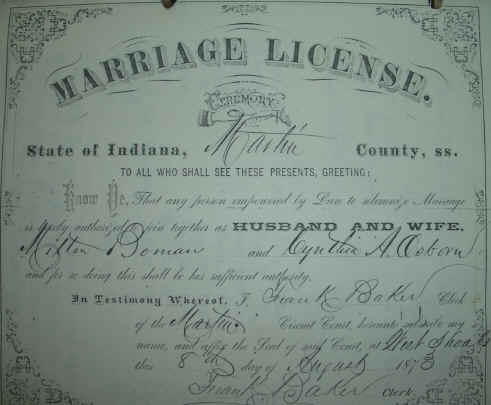 MARRIAGE LICENSE.
CEREMONY
State of Indiana, Martin County, ss.
TO ALL WHO SHALL SEE THESE PRESENTS, GREETING:
Know Ye, That any person empowered by Law to solemnize Marriage
is hereby authorized to join together as HUSBAND AND WIFE,
Milton Boman and Cynthia A. Osborn
and for so doing this shall be his sufficient authority.
In Testimony Whereof, I, Frank Baker Clerk
of the Martin Circuit Court, hereunto subscribe my
name, and affix the Seal of said Court, at West Shoals
this 8th day of August 1873
Frank Baker Clerk.